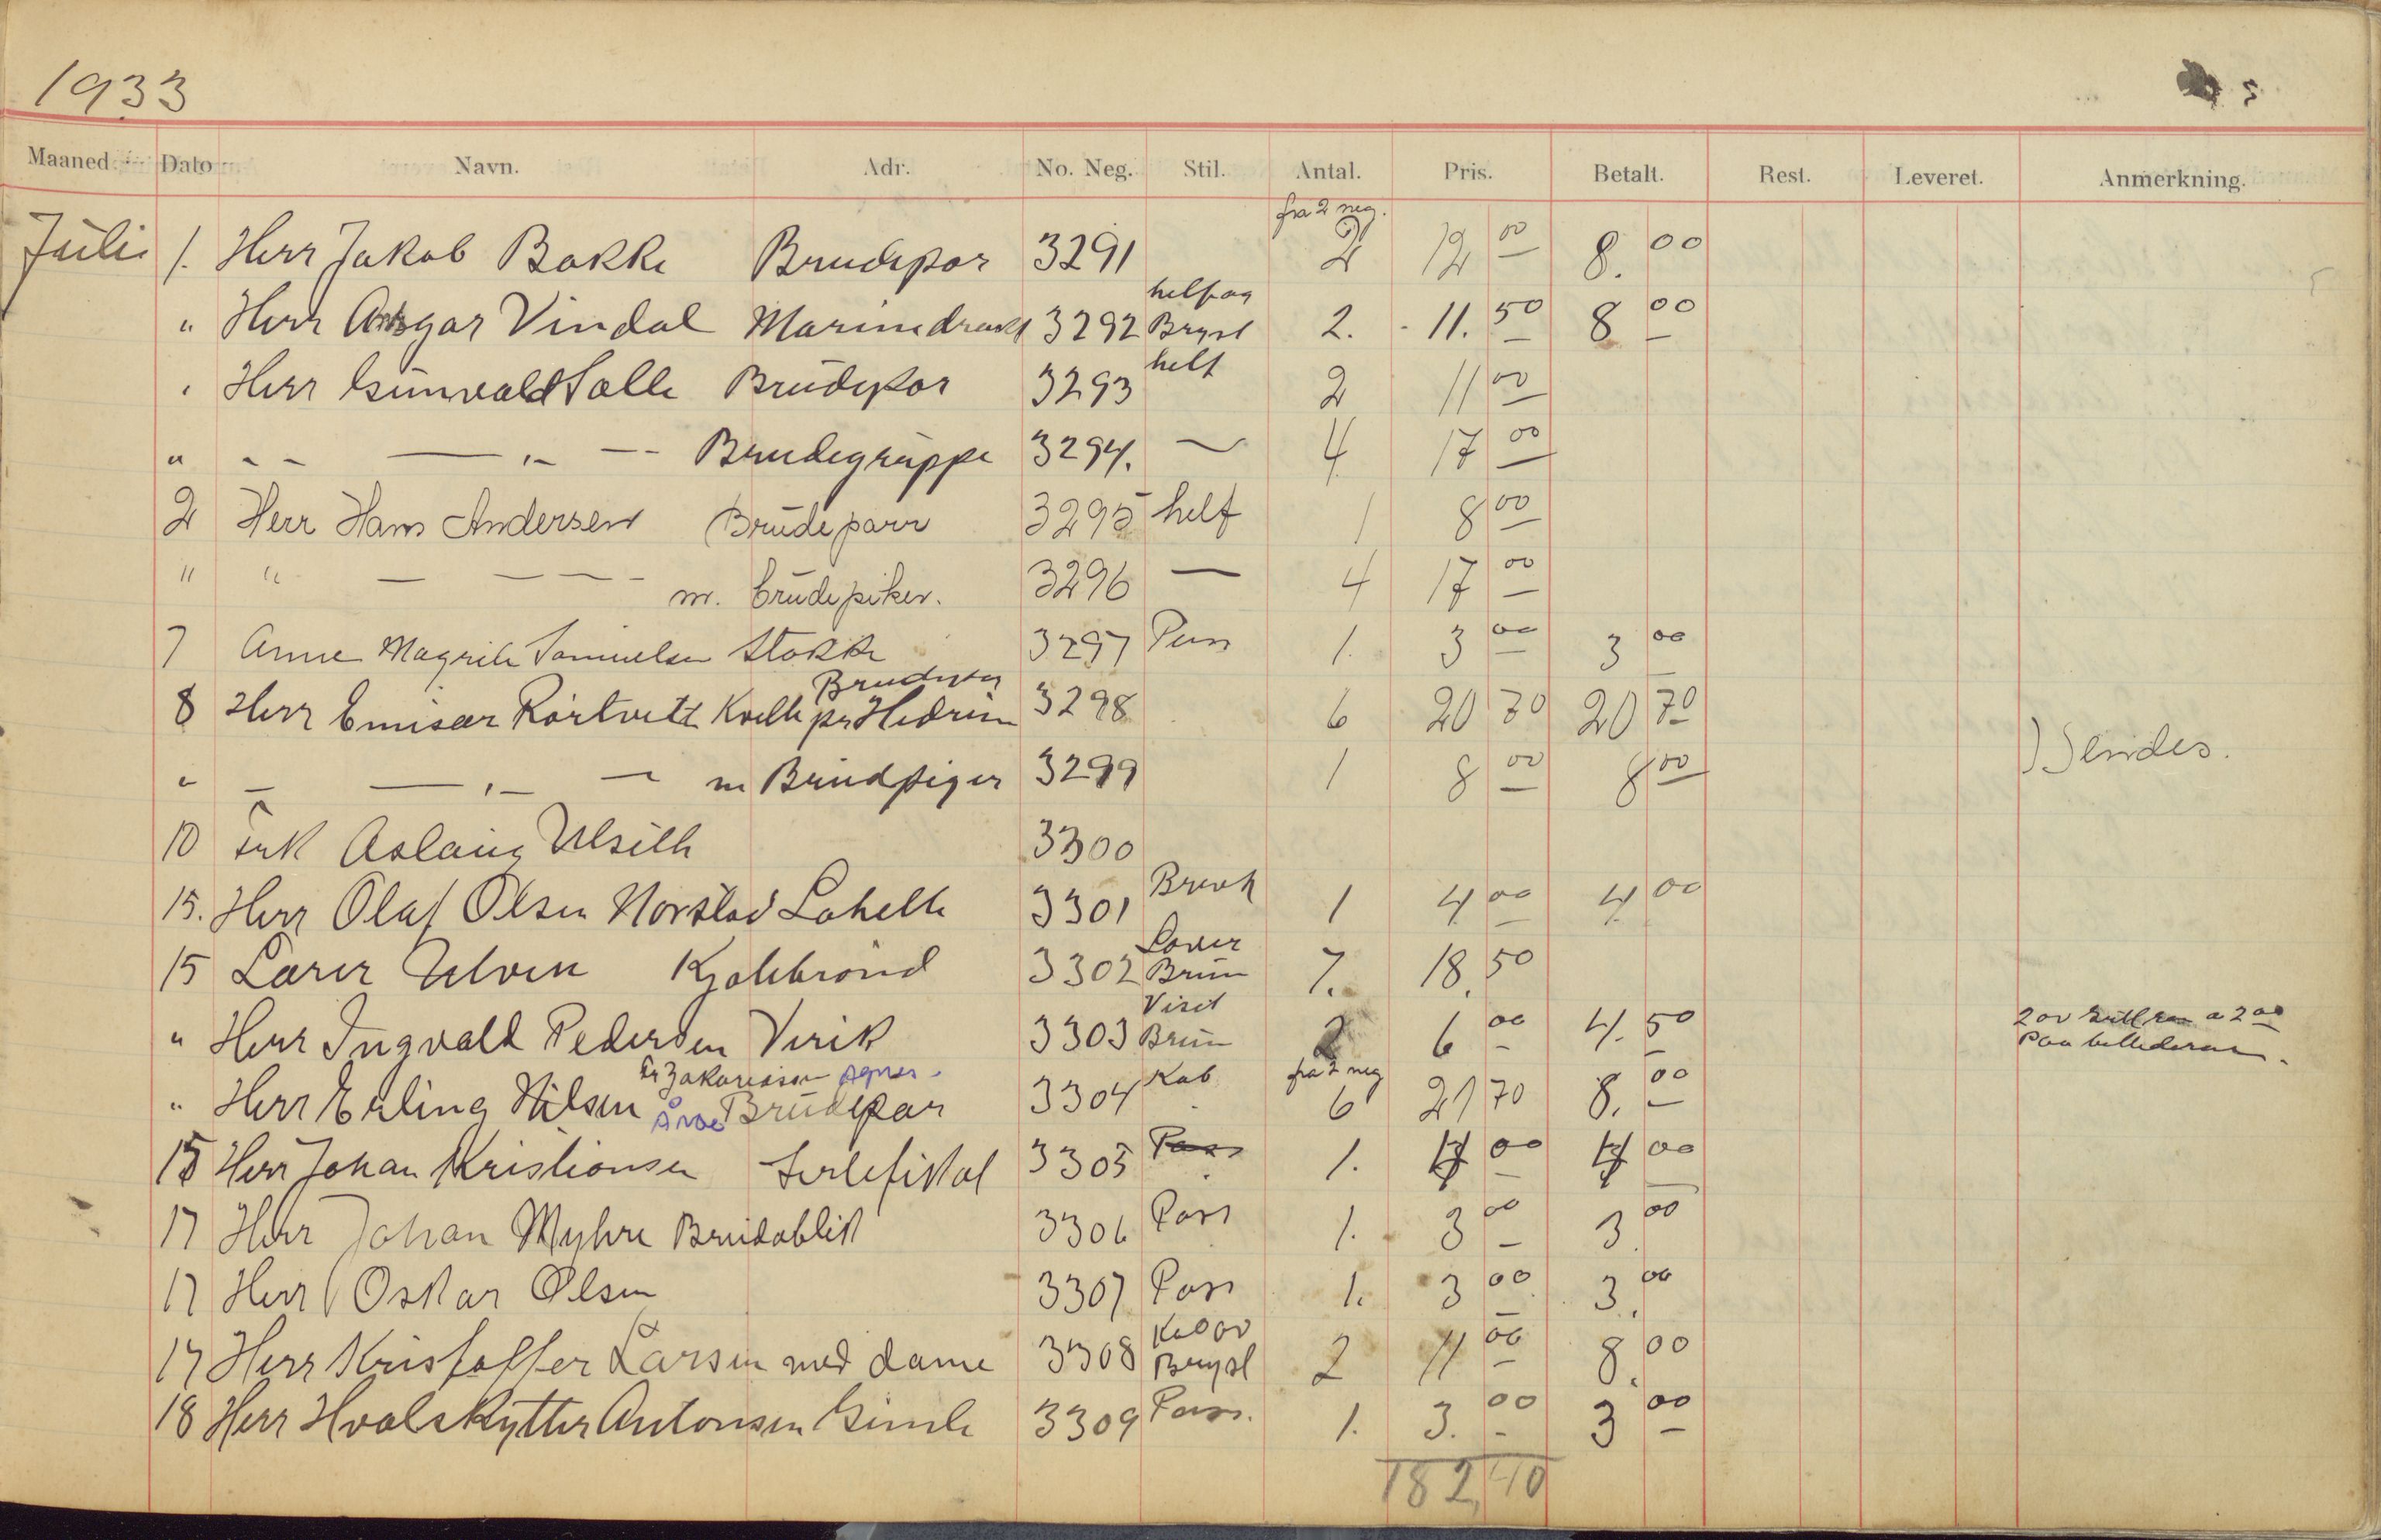 1933
Maaned Dato Navn. Adr. No. Neg. Stil. Antal. Pris. Betalt. Rest. Leveret. Anmerkning.
fra 2 neg.
Juli 1. Herr Jakob Bakke Brudepar 3291 2 12 00 8. 00
" Herr Ansgar Vindal Marinedrakt 3292 helf og Bryst 2. 11. 50 8 00
" Herr Gunvald Salle Brudepar 3293 helf 2 11 00
" Brudegruppe 3294. 4 17 00
2 Herr Hans Andersen Brudeparr 3295 helf 1 8 00
" " m. brudepiker. 3296 4 17 00
7 Anne Magrete Samuelsen Stokke 3297 Pass 1. 3 00 3 00
Brudepar
8 Herr Emisar Rörtvett Kvelle pr Hedrum 3298 6 20 70 20 70
" m Brudpiger 3299 1 8 00 8 00 Sendes.
10 Frk Aslaug Ulseth 3300
15. Herr Olaf Olsen Norstad Lahelle 3301 1 4 00 4. 00
15 Lærer Ulven Kjølebrönd 3302 Brun 7. 18. 50
" Herr Ingvald Pedersen Virik 3303 Visit Brun 2 6 00 4. 50 a 2 00
Paa billederne.
fr Zakariassen Agnes. fra 2 neg
" Herr Erling Nilsen Brudepar 3304 Kab 6 21 70 8. 00
15 Herr Johan Kristiansen 3305 Pass 1. 4 00 4 00
17 Herr Johan Myhre Breidablik 3306 Pass 1. 3 00 3 00
17 Herr Oskar Olsen 3307 Pass 1. 3 00 3. 00
17 Herr Kristoffer Larsen med dame 3308 Bryst 2 11 00 8. 00
18 Herr Hvalskytter Antonsen Gimle 3309 Pass. 1. 3. 00 3 00
182,40